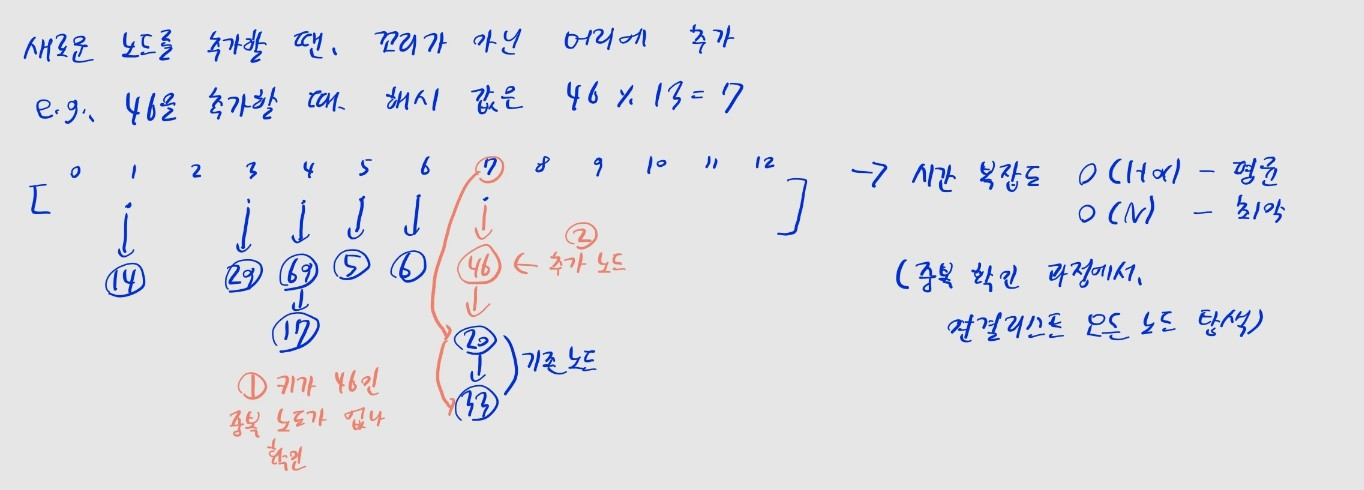 새로운 노드를 추가할 땐, 꼬리가 아닌 머리에 추가
e.g., 46을 추가할 때, 해시 값은 46 % 13 = 7
[ 0 1 2 3 4 5 6 7 8 9 10 11 12 ]
→ 시간 복잡도 O(1+α) - 평균
O(N) - 최악
(중복 확인 과정에서,
연결리스트 모든 노드 탐색)
14 29 69 5 6 46 ← ② 추가 노드
17 20 기존 노드
33
① 키가 46인
중복 노드가 없나
확인